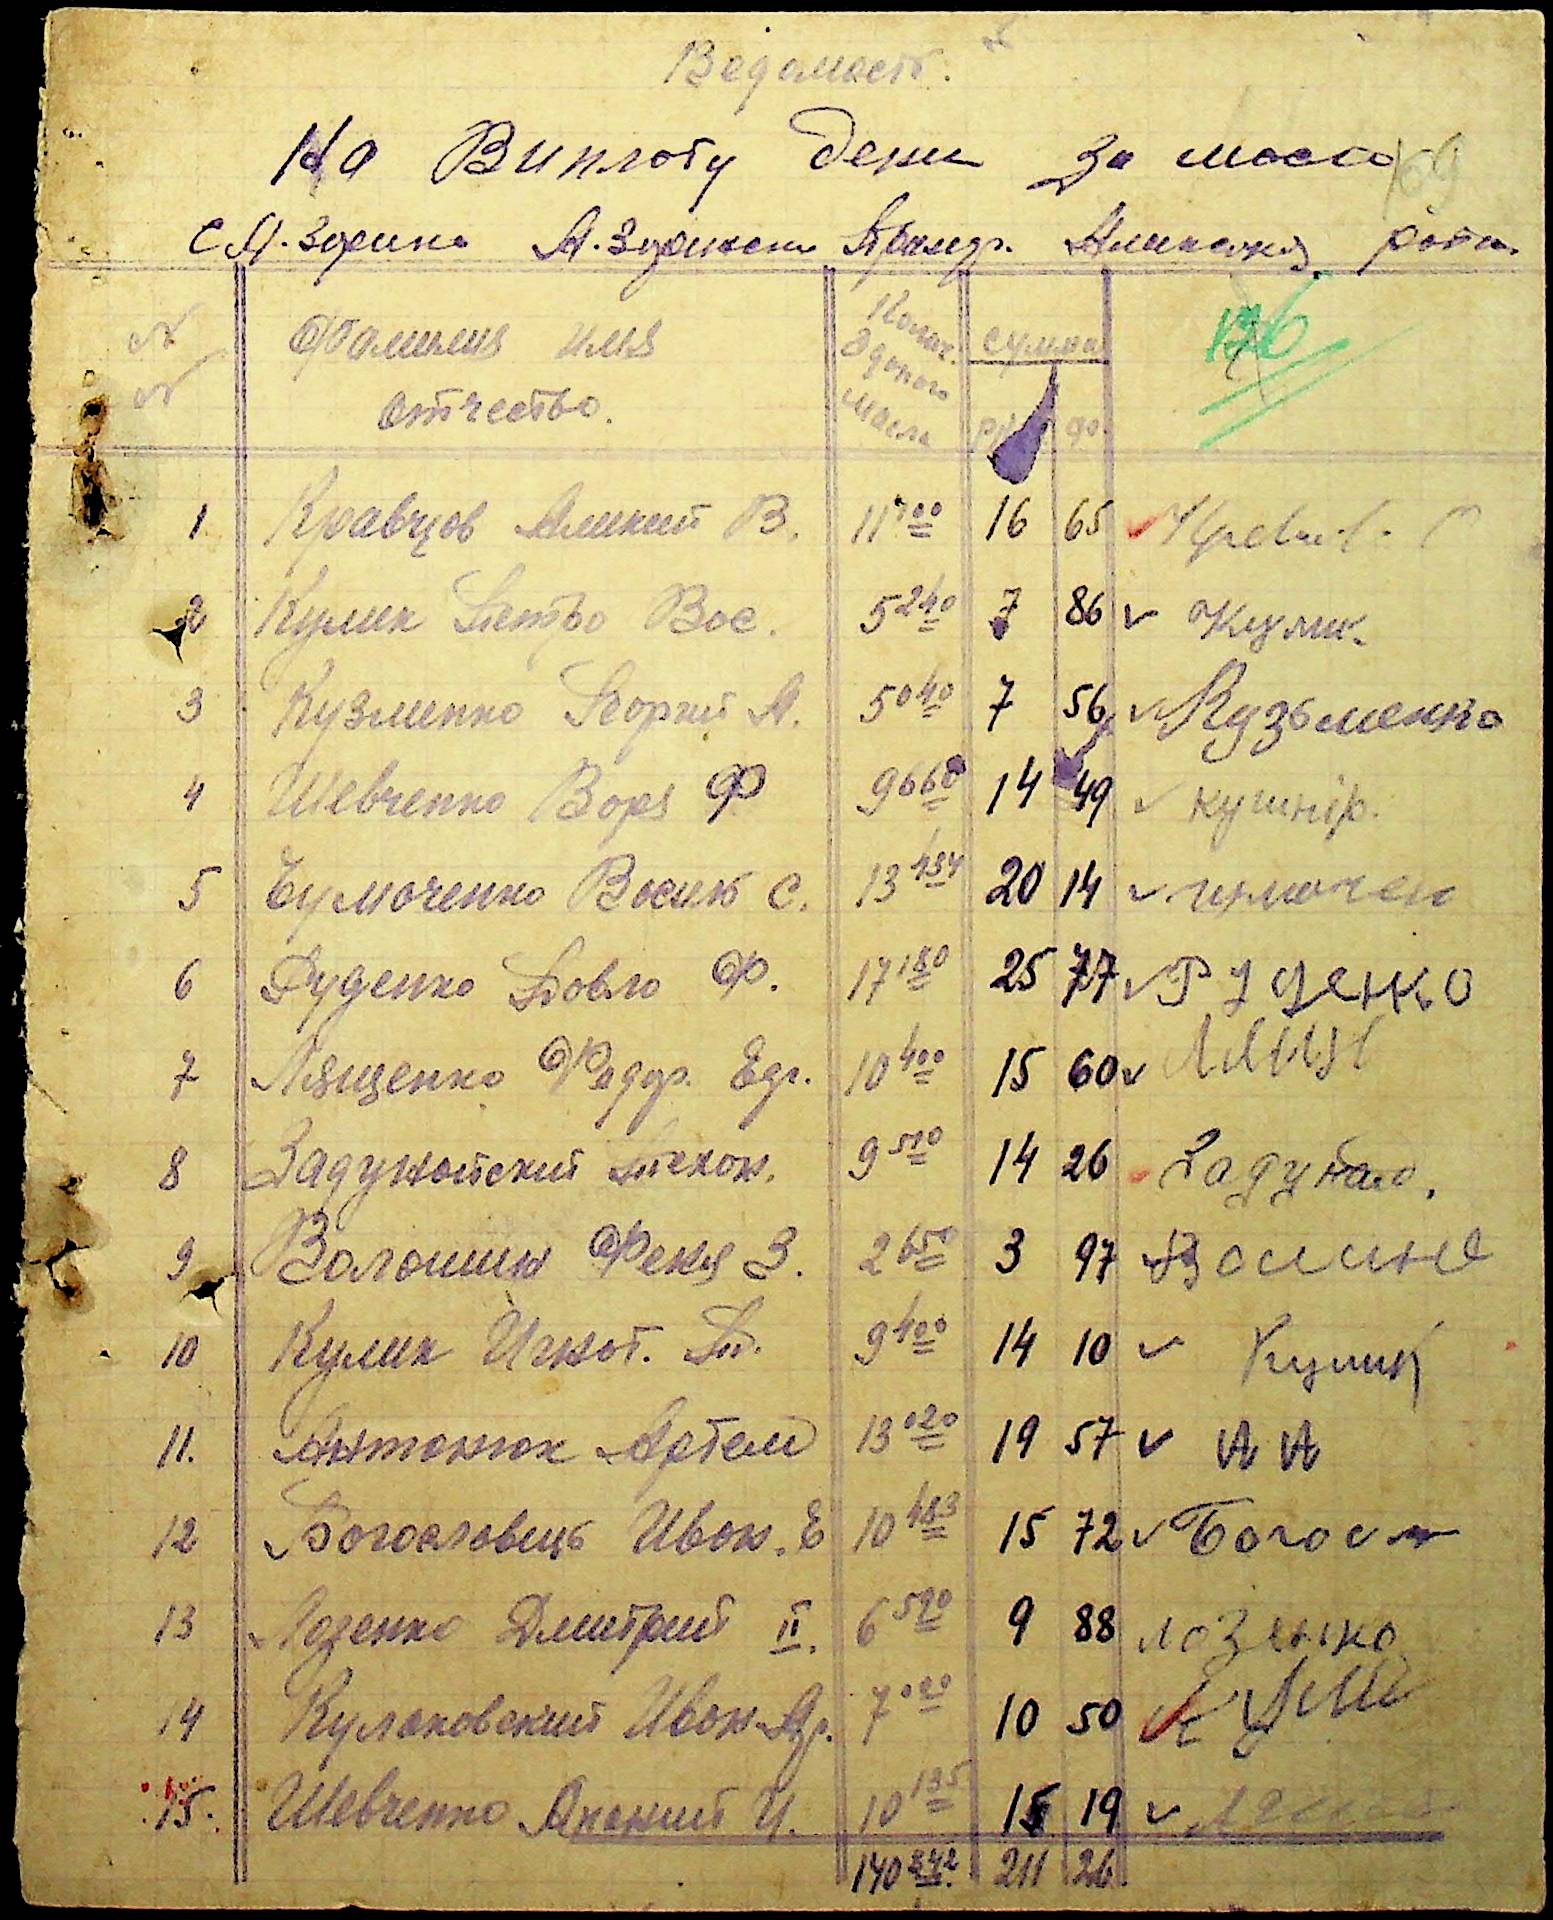 Ведомость.
На Виплоту дени за масло 69
с. А. Зорина А. Зорикон Аликсанд.
136
№ № Фамилия имя отчество. Колич. зданого масла сумма
руб. ко.
1 Кравцов Аликий В. 11 100 16 65
2 Кулик Петро Вос. 5 240 7 86 Кулик.
3 Кузменко Георгий А. 5 040 7 56 Кузьменко
4 Шевченко Воря Ф 9 660 14 49 кушнір.
5 Чумоченко Восиль С. 13 434 20 14
6 Руденко Повло Ф. 17 180 25 77 Руденко
7 Лященко Федор. Едг. 10 400 15 60
8 Задунойский Тихон. 9 510 14 26 Задунаю.
9 Волошин Феня З. 2 650 3 97
10 Кулик Игнот. П. 9 400 14 10 Кулик
11. Антонюк Артем 13 020 19 57 АА
12 Богословець Ивон. Е 10 483 15 72 Богосл
13 Лозенко Дмитрий II. 6 590 9 88 лозенко
14 Кулаковский Ивон Др. 7 000 10 50
15. Шевченко Аноний И. 10 135 15 19
140 842 211 26